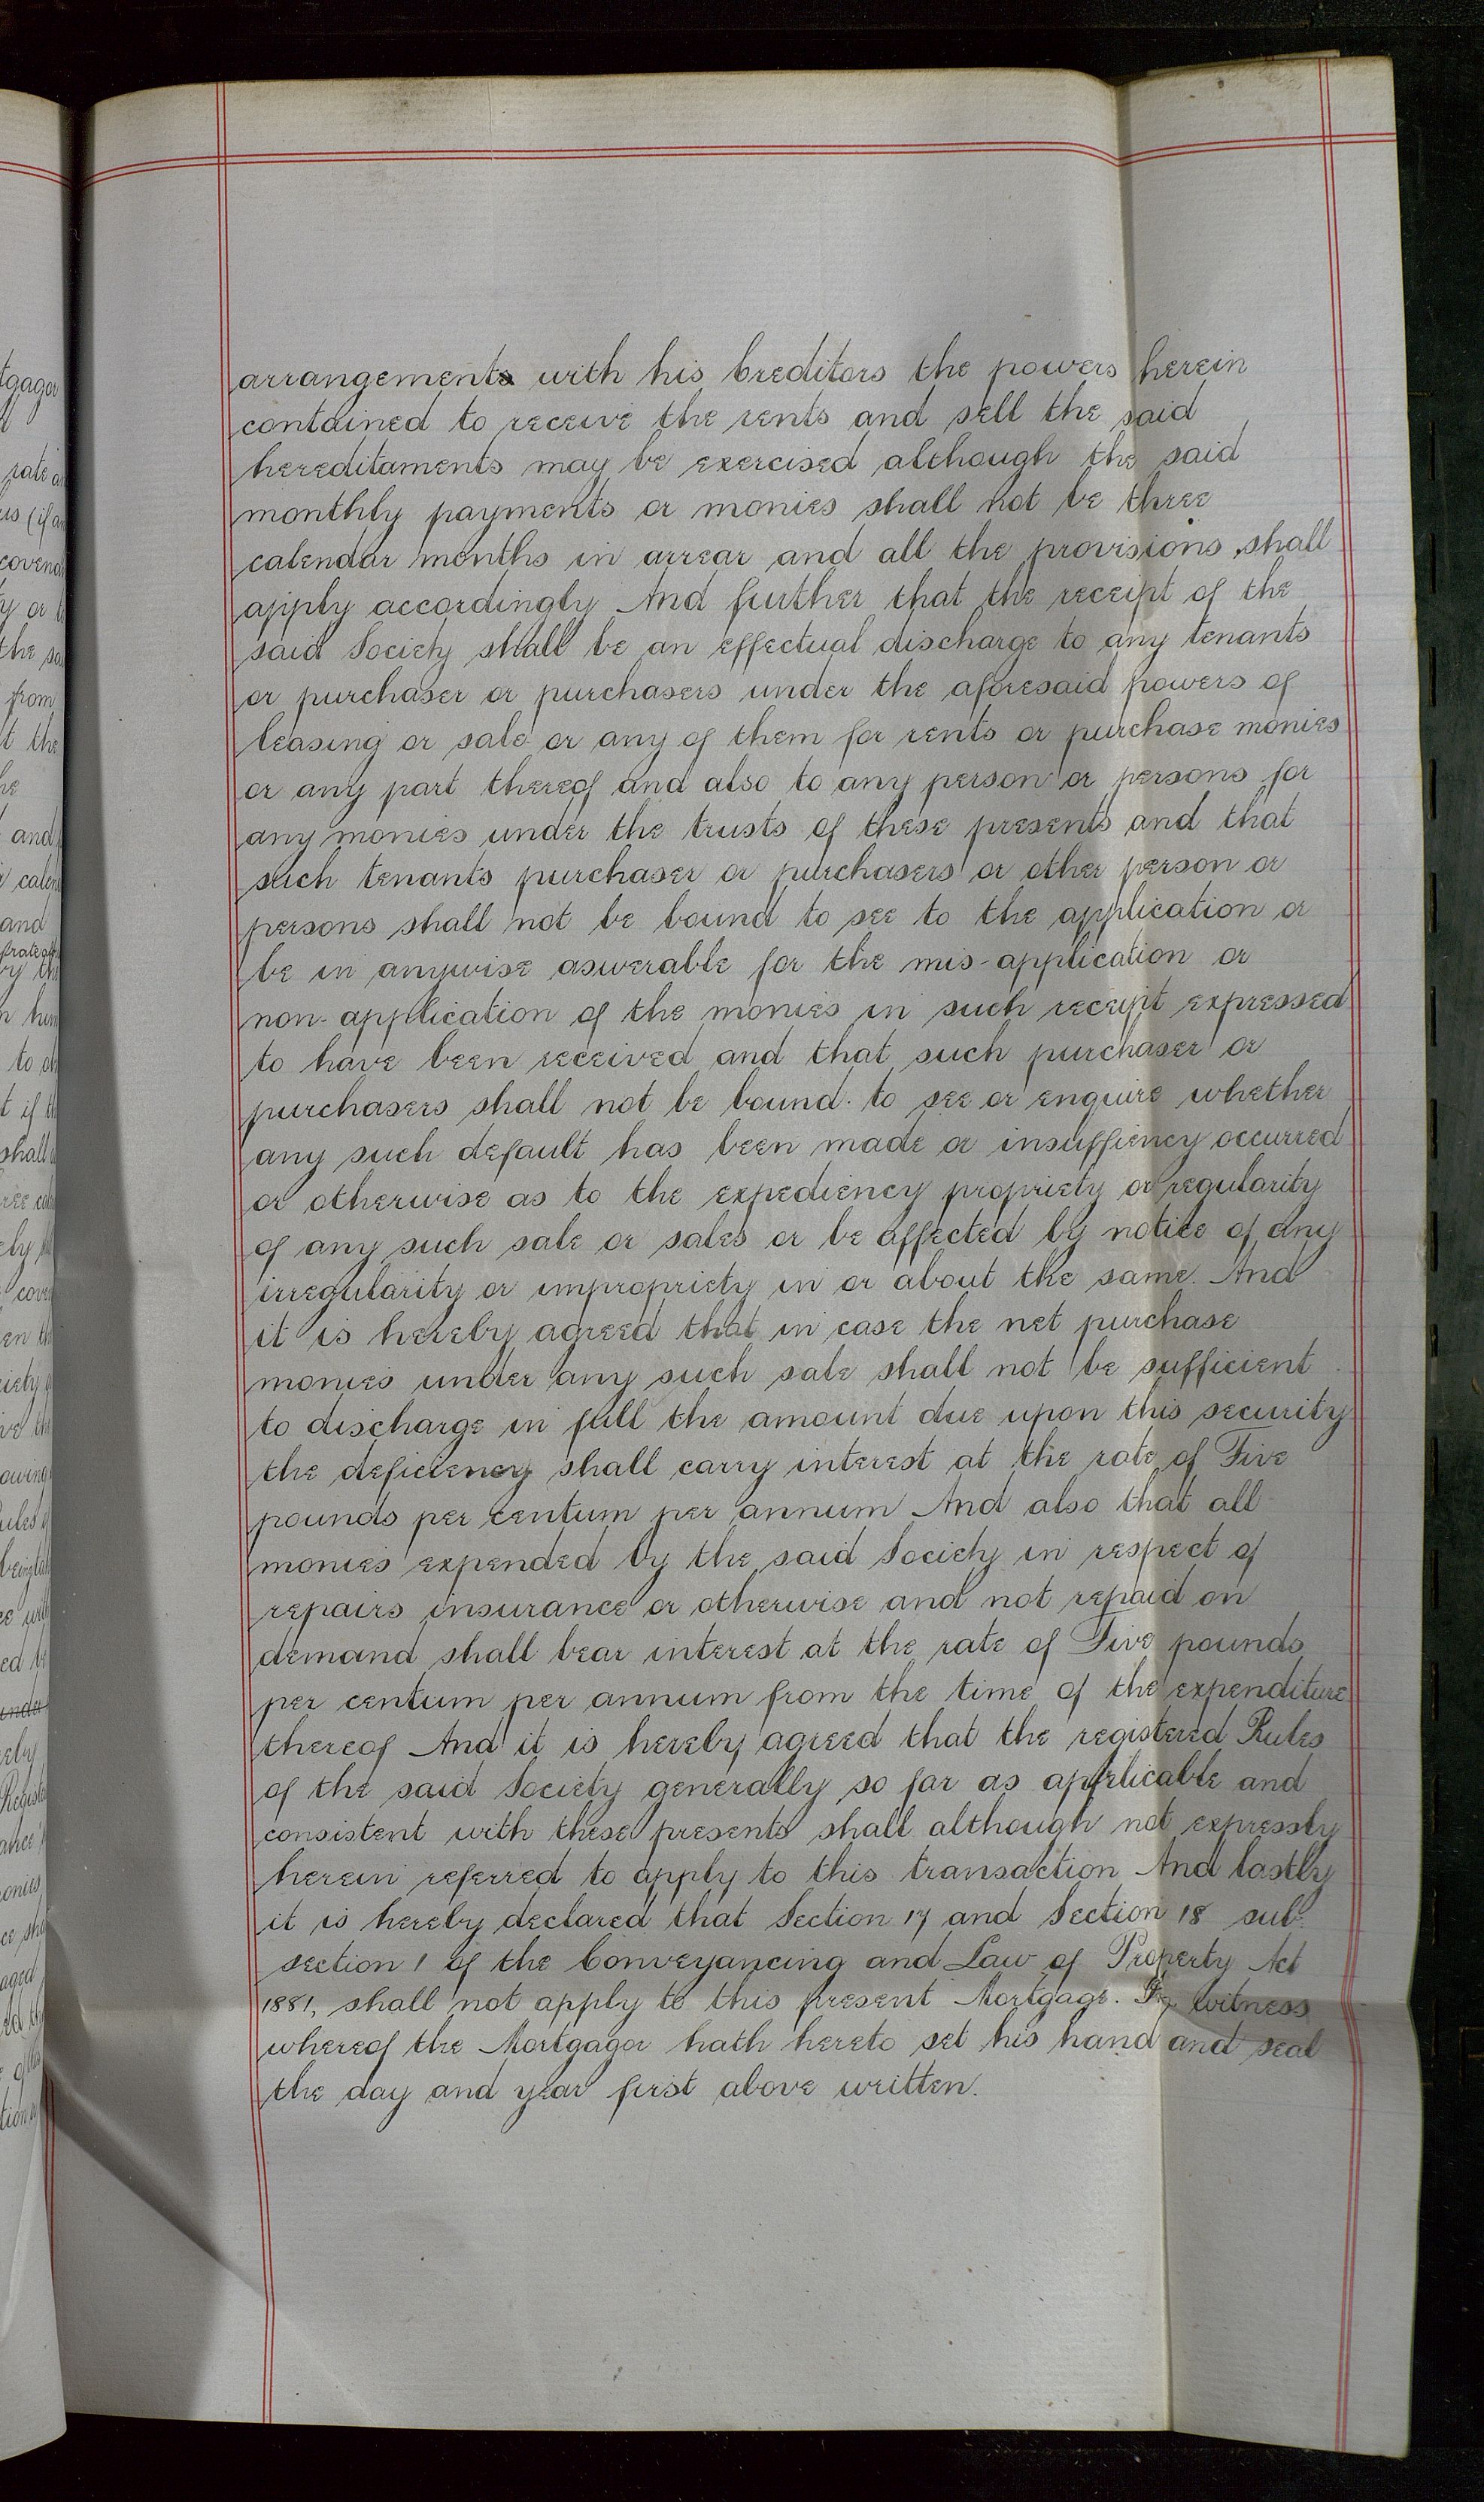 arrangements with his Creditors the powers herein
contained to receive the rents and sell the said
hereditaments may be exercised although the said
monthly payments or monies shall not be three
calendar months in arrear and all the provisions shall
apply accordingly And further that the receipt of the
said Society shall be an effectual discharge to any tenants
or purchaser or purchasers under the aforesaid powers of
leasing or sale or any of them for rents or purchase monies
or any part thereof and also to any person or persons for
any monies under the trusts of these presents and that
such tenants purchaser or purchasers or other person or
persons shall not be bound to see to the application or
be in anywise aswerable for the mis-application or
non-application of the monies in such receipt expressed
to have been received and that such purchaser or
purchasers shall not be bound to see or enquire whether
any such default has been made or insuffiency occurred
or otherwise as to the expediency propriety or regularity
of any such sale or sales or be affected by notice of any
irregularity or impropriety in or about the same. And
it is hereby agreed that in case the net purchase
monies under any such sale shall not be sufficient
to discharge in full the amount due upon this security
the deficiency shall carry interest at the rate of Five
pounds per centum per annum And also that all
monies expended by the said Society in respect of
repairs insurance or otherwise and not repaid on
demand shall bear interest at the rate of Five pounds
per centum per annum from the time of the expenditure
thereof And it is hereby agreed that the registered Rules
of the said Society generally so far as applicable and
consistent with these presents shall although not expressly
herein referred to apply to this transaction And lastly
it is hereby declared that Section 17 and Section 18 sub-
section 1 of the Conveyancing and Law of Property Act
1881, shall not apply to this present Mortgage. In witness
whereof the Mortgagor hath hereto set his hand and seal
the day and year first above written.